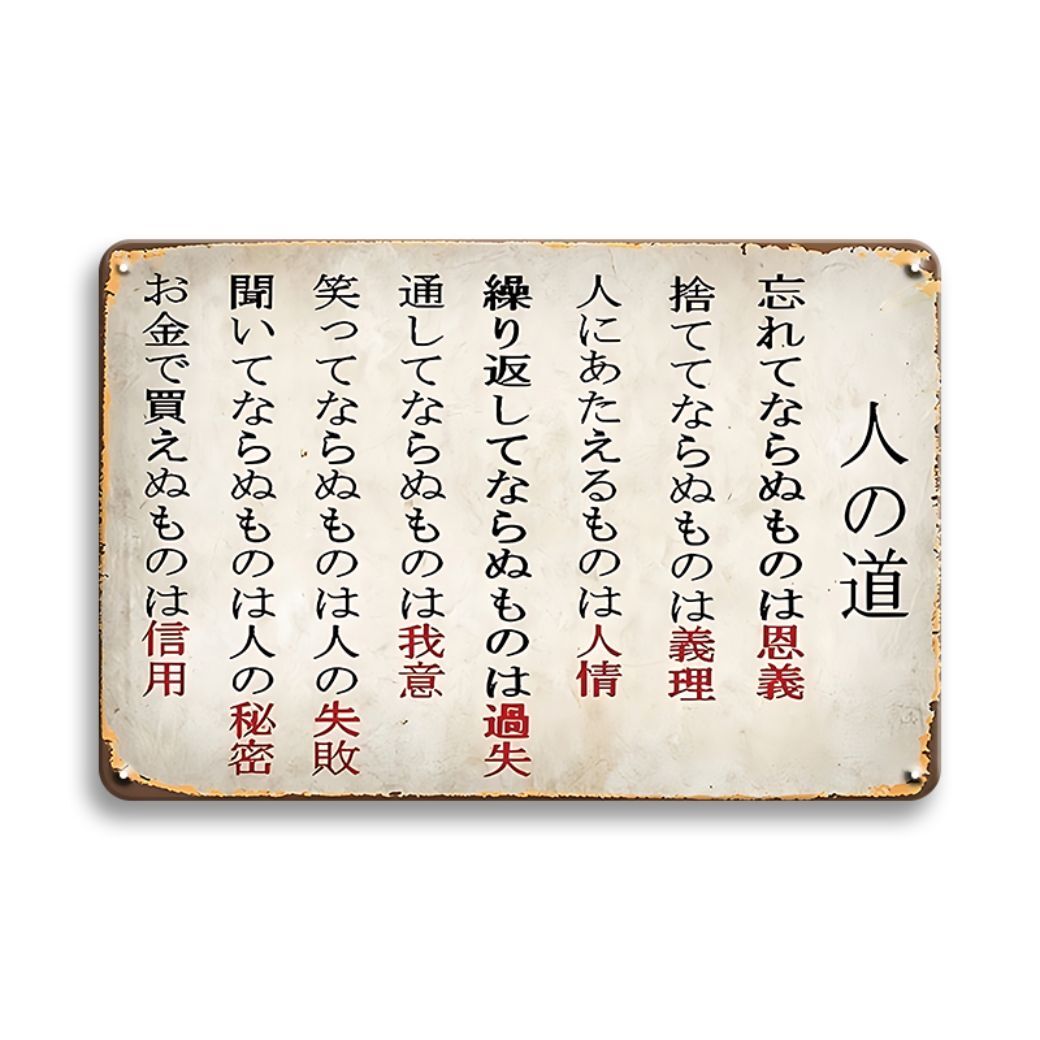 人の道
忘れてならぬものは恩義
捨ててならぬものは義理
人にあたえるものは人情
繰り返してならぬものは過失
通してならぬものは我意
笑ってならぬものは人の失敗
聞いてならぬものは人の秘密
お金で買えぬものは信用